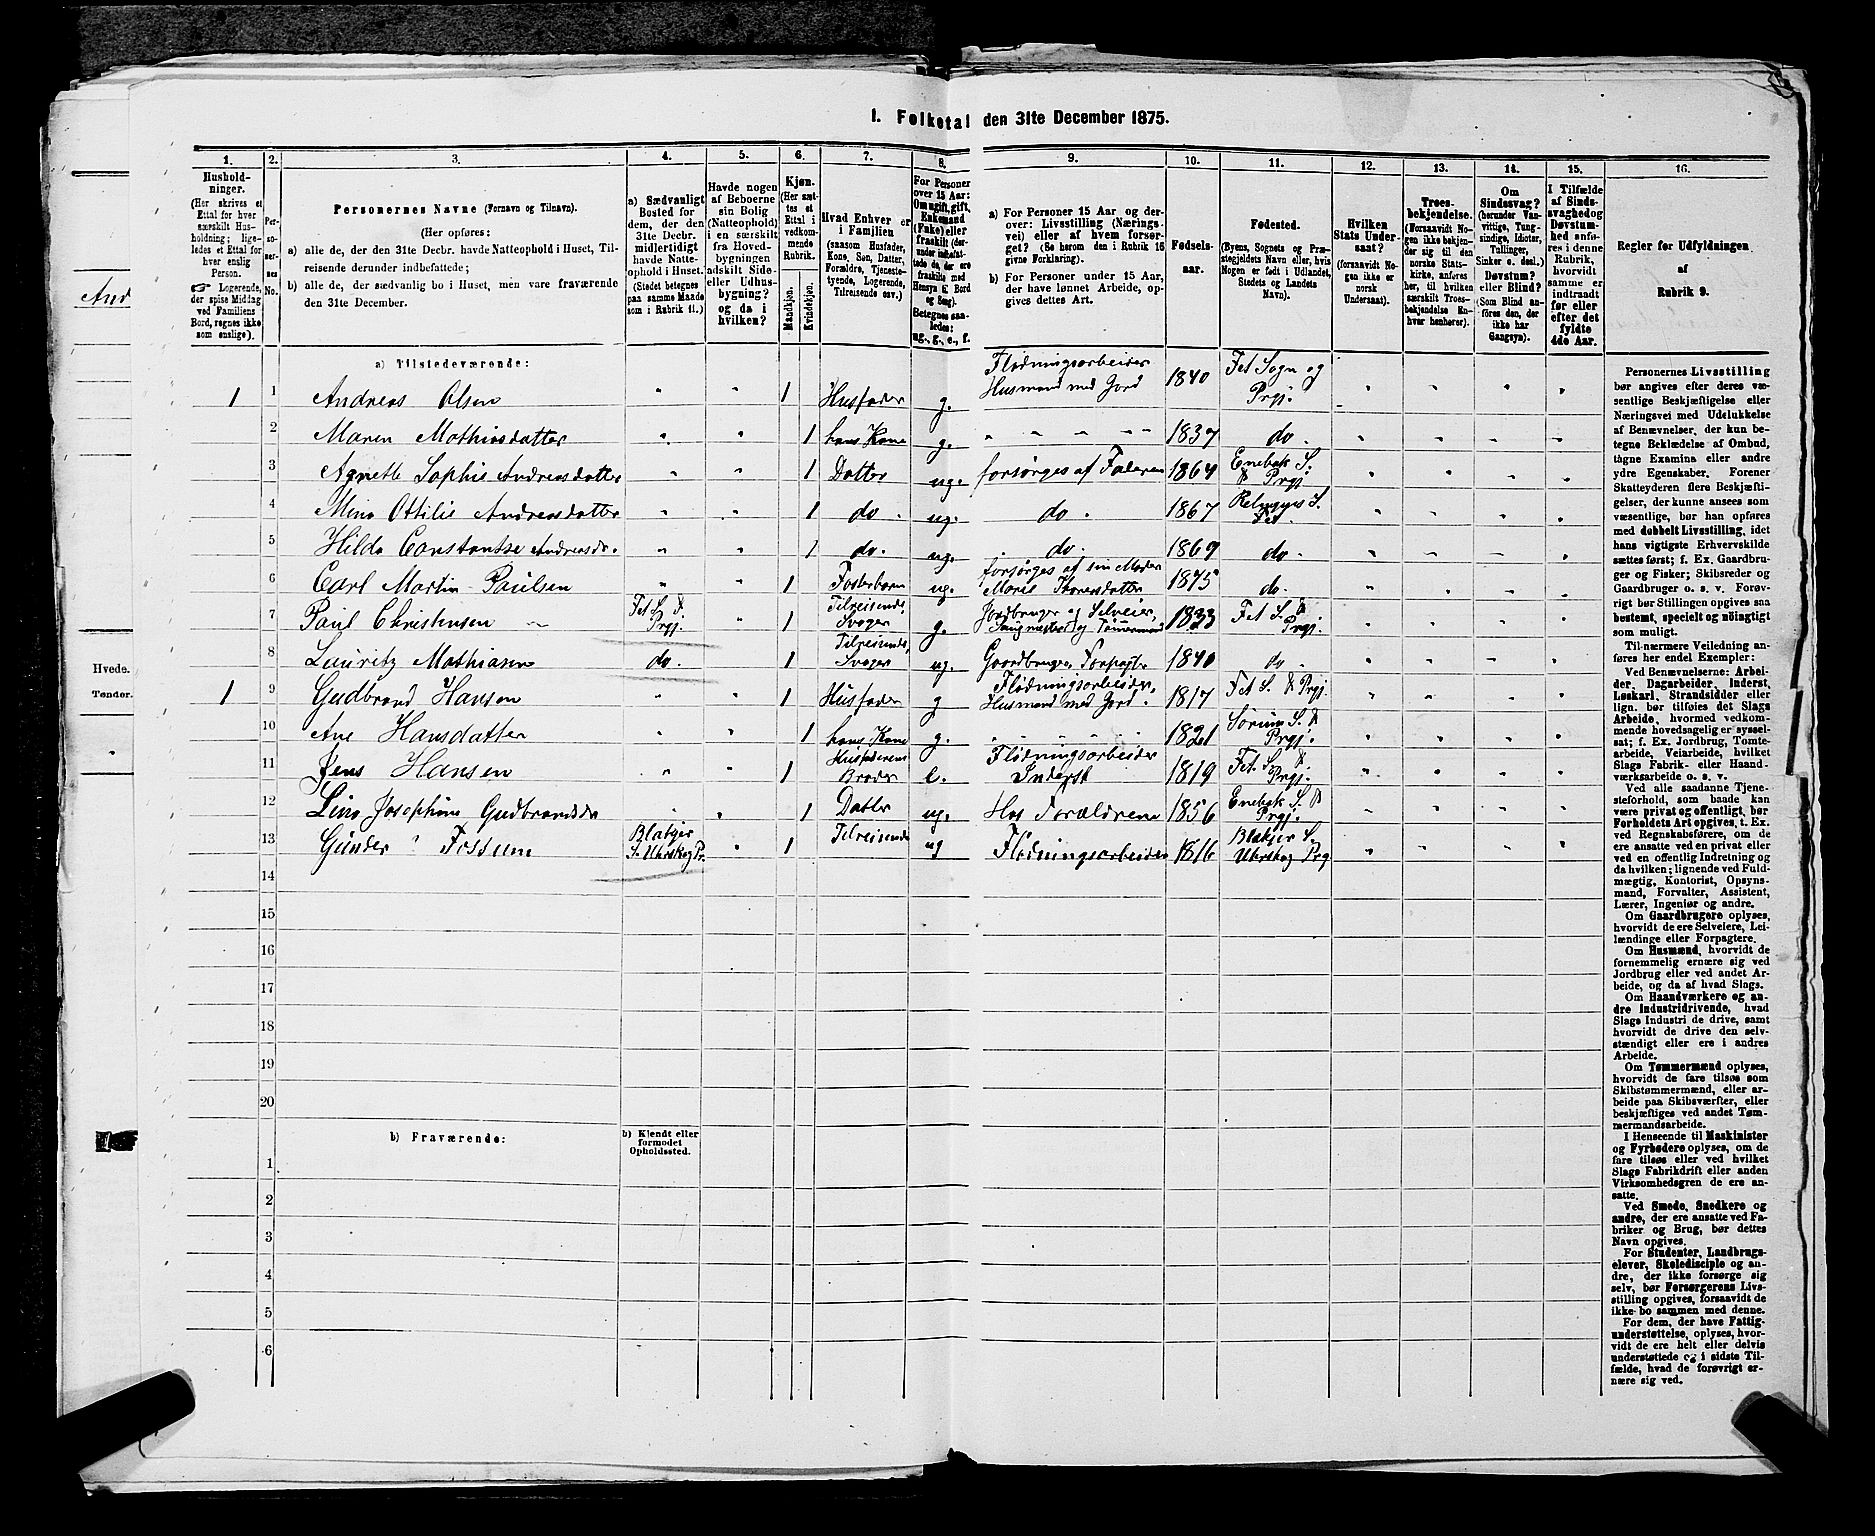 I. Folketal den 31te December 1875.
1.
2.
3.
4.
5.
6.
7.
8.
9.
10.
11.
12.
13.
14.
15.
16.
Husholdninger.
(Her skrives et Ettal for hver særskilt Husholdning; ligeledes et Ettal for hver enslig Person.
☞ Logerende, der spise Middag ved Familiens Bord, regnes ikke som enslige).
Personernes No.
Personernes Navne (Fornavn og Tilnavn).
(Her opføres:
a) alle de, der den 31te Decbr. havde Natteophold i Huset, Tilreisende derunder indbefattede;
b) alle de, der sædvanlig bo i Huset, men vare fraværende den 31te December.
a) Sædvanligt Bosted for dem, der den 31te Decbr. midlertidigt havde Natteophold i Huset.
(Stedet betegnes paa samme Maade som i Rubrik 11.)
Havde nogen af Beboerne sin Bolig (Natteophold) i en særskilt fra Hovedbygningen adskilt Side- eller Udhusbygning? og da i hvilken?
Kjøn.
(Her sættes et Ettal i vedkommende Rubrik.
Mandkjøn.
Kvindekjøn.
Hvad Enhver er i Familien
(saasom Husfader, Kone, Søn, Datter, Forældre, Tjenestetyende, Logerende, Tilreisende osv.)
For Personer over 15 Aar: Om ugift, gift, Enkemand (Enke) eller fraskilt
Betegnes saaledes: ug., g., e., f.
a) For Personer 15 Aar og derover: Livsstilling (Næringsvei) eller af hvem forsørget? (Se herom den i Rubrik 16 givne Forklaring).
b) For Personer under 15 Aar, der have lønnet Arbeide, opgives dettes Art.
Fødselsaar.
Fødested.
(Byens, Sognets og Præstegjeldets Navn eller, hvis Nogen er født i Udlandet, Stedets og Landets Navn).
Hvilken Stats Undersaat?
(forsaavidt Nogen ikke er norsk Undersaat).
Troesbekjendelse.
(Forsaavidt Nogen ikke bekjender sig til den norske Statskirke, anføres her, til hvilken særskilt Troesbekjendelse Enhver henhører).
Om Sindssvag?
(herunder Vanvittige, Tungsindige, Idioter, Tullinger, Sinker o. desl.)
Døvstum? eller Blind?
(Som Blind anføres den, der ikke har Gangsyn).
I Tilfælde af Sindssvaghed og Døvstumhed anføres i denne Rubrik, hvorvidt samme er indtraadt før eller efter det fyldte 4de Aar.
Regler for Udfyldningen af Rubrik 9.
And
Hvede.
Tønder.
a) Tilstedeværende:
1 1 Andreas Olsen " " 1 Husfader g. Flødningsarbeider Husmand med Jord 1840 Fet Sogn og Prgj.
2 Maren Mathiasdatter " " 1 hans Kone g. " " " " " 1837 do.
3 Agnethe Sophie Andreasdatter " " 1 Datter ug. forsørges af Faderen 1864 Enebak S. & Prgj
4 Mina Ottilie Andreasdatter " " 1 do. ug. do. 1867 S. Fet.
5 Hilda Constantse Andreasda. " " 1 do. ug. do. 1869 do.
6 Carl Martin Paulsen " " 1 Fosterbarn ug. forsørges af sin Moder Marie Thoresdatter 1875 do.
7 Paul Christensen Fet S. & Prgj. " 1 Tilreisende, Svoger g. Jordbruger og Selveier, Saugmester og Tømmermand 1833 Fet S. & Prgj.
8 Lauritz Mathiasen do. 1 Tilreisende, Svoger ug. Gaardbruger, Forpagter 1840 do.
1 9 Gudbrand Hansen " " 1 Husfader g Flødningsarbeider, Husmand med Jord. 1817 Fet S. & Prgj.
10 Ane Hansdatter " " 1 hans Kone g. " " " " 1821 Sørum S. & Prgj.
11 Jens Hansen 1 Husfaderens Broder e. Flødningsarbeider Inderst 1819 Fet. S. & Prgj.
12 Lina Josephine Gudbrandsda " " 1 Datter ug. Hos Forældrene 1856 Enebak S. & Prgj.
13 Gunder Fossum Blakjer S. Uhrskog Pr. " 1 Tilreisende ug Flødningsarbeider 1816 Blakjer S. Uhrskog Prg
14
15
16
17
18
19
20
b) Fraværende:
b) Kjendt eller formodet Opholdssted.
1
2
3
4
5
6
Personernes Livsstilling bør angives efter deres væsentlige Beskjæftigelse eller Næringsvei med Udelukkelse af Benævnelser, der kun betegne Beklædelse af Ombud, tagne Examina eller andre ydre Egenskaber. Forener Skatteyderen flere Beskjæftigelser, der kunne ansees som væsentlige, bør han opføres med dobbelt Livsstilling, idet hans vigtigste Erhvervskilde sættes først; f. Ex. Gaardbruger og Fisker; Skibsreder og Gaardbruger o. s. v. Forøvrigt bør Stillingen opgives saa bestemt, specielt og nøiagtigt som muligt.
Til nærmere Veiledning anføres her endel Exempler:
Ved Benævnelserne: Arbeider, Dagarbeider, Inderst, Løskarl, Strandsidder eller lign. bør tilføies det Slags Arbeide, hvormed vedkommende hovedsagelig er sysselsat; f. Ex. Jordbrug, Tomtearbeide, Veiarbeide, hvilket Slags Fabrik- eller Haandværksarbeide o. s. v.
Ved alle saadanne Tjenesteforhold, som baade kan være privat og offentligt, bør Forholdets Art opgives, t. Ex. ved Regnskabsførere, om de ere ansatte ved en privat eller ved en offentlig Indretning og da hvilken; lignende ved Fuldmægtig, Kontorist, Opsynsmand, Forvalter, Assistent, Lærer, Ingeniør og andre.
Om Gaardbrugere oplyses, hvorvidt de ere Selveiere, Leilændinge eller Forpagtere.
Om Husmænd, hvorvidt de fornemmelig ernære sig ved Jordbrug eller ved andet Arbeide, og da af hvad Slags.
Om Haandværkere og andre Industridrivende, hvad Slags Industri de drive, samt hvorvidt de drive den selvstændigt eller ere i andres Arbeide.
Om Tømmermænd oplyses, hvorvidt de fare tilsøs som Skibstømmermænd, eller arbeide paa Skibsværfter, eller beskjæftiges ved andet Tømmermandsarbeide.
I Henseende til Maskinister og Fyrbødere oplyses, om de fare tilsøs eller ved hvilket Slags Fabrikdrift eller anden Virksomhedsgren de ere ansatte.
Ved Smede, Snedkere og andre, der ere ansatte ved Fabriker og Brug, bør dettes Navn opgives.
For Studenter, Landbrugselever, Skoledisciple og andre, der ikke forsørge sig selv, bør Forsørgerens Livsstilling opgives, forsaavidt de ikke bo sammen med denne.
For dem, der have Fattigunderstøttelse, oplyses, hvorvidt de ere helt eller delvis understøttede og i sidste Tilfælde, hvad de forøvrigt ernære sig ved.